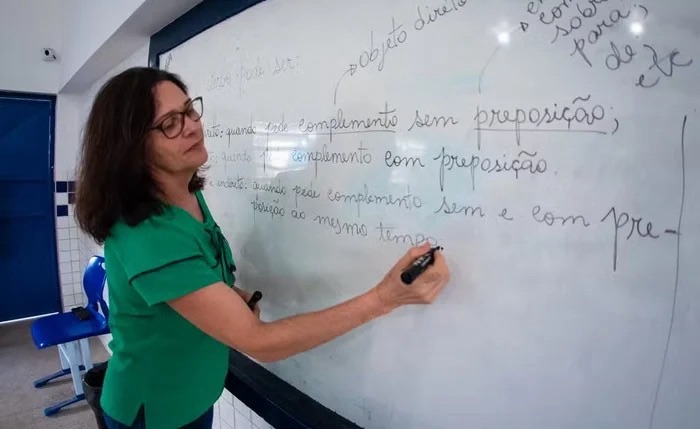 pode ser:
objeto direto
sobre
para,
de etc
quando pede complemento sem preposição;
quando p complemento com preposição.
indireto: quando pede complemento sem e com pre-
posição ao mesmo tempo